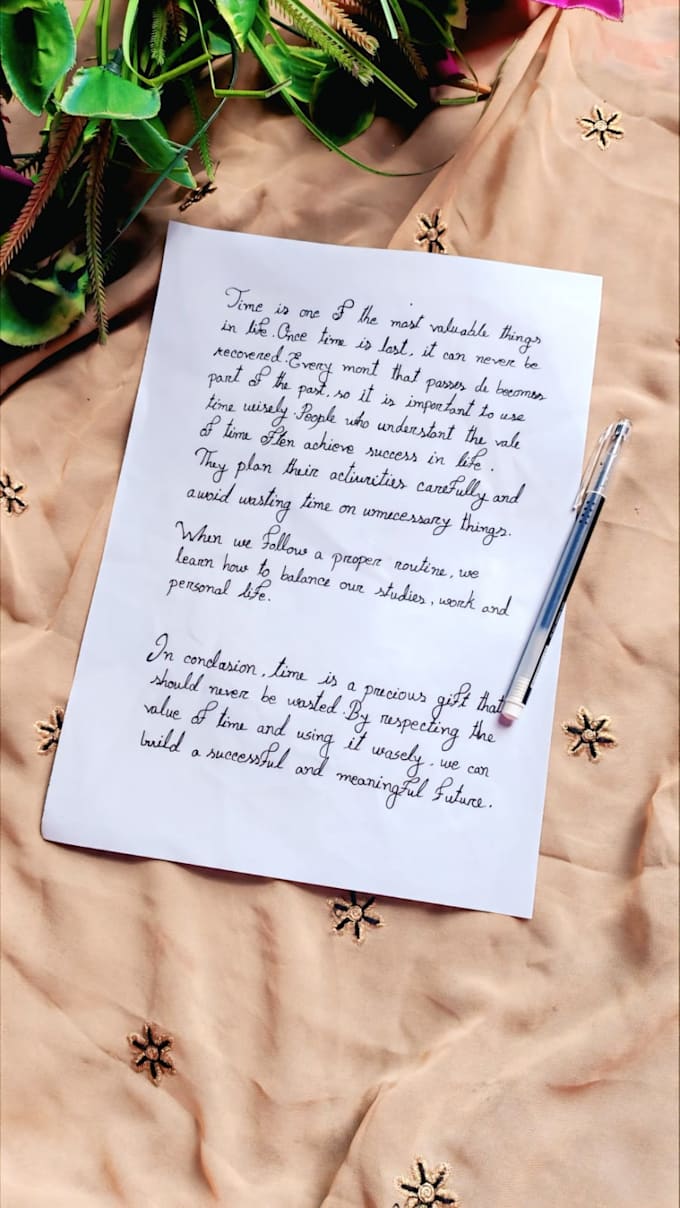 Time is one of the most valuable things
in life. Once time is lost, it can never be
recovered. Every mont that passes de becomes
part of the past, so it is important to use
time wisely. People who understant the vale
of time often achieve success in life.
They plan their actiurities carefully and
awoid wasting time on unnecessary things.
When we follow a proper routine, we
learn how to balance our studies, work and
personal life.
In conclasion, time is a precious gift that
should never be wasted. By respecting the
value of time and using it wasely, we can
build a successful and meaningful future.